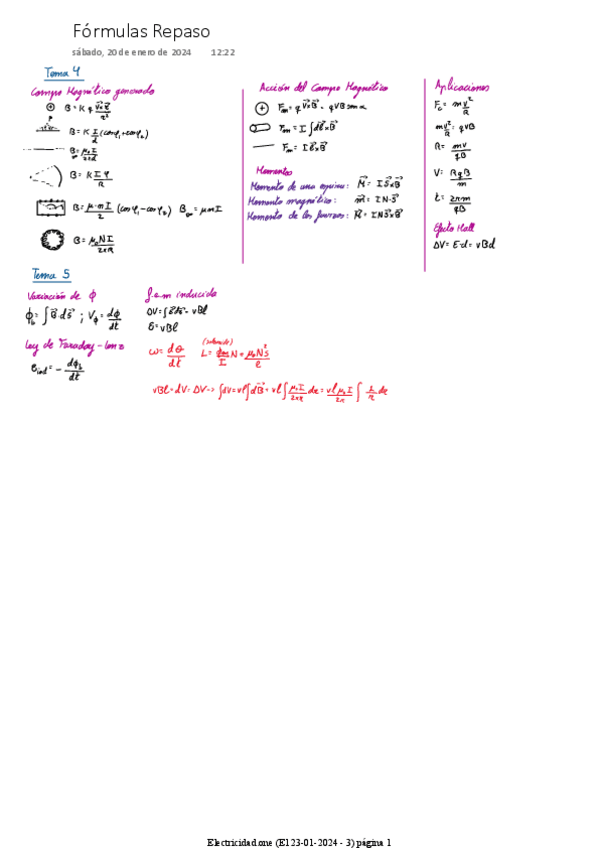 Fórmulas Repaso
sábado, 20 de enero de 2024 12:22
Tema 4
Campo Magnético generado
B = K q v⃗xr⃗/r²
B = K I/d (cosφ₁+cosφ₂)
B = μ₀I/2πd
B = K I φ/R
B = μ·n I/2 (cosφ₁-cosφ₂) B∞ = μnI
B = μ₀NI/2πR
Acción del Campo Magnético
Fm = q v⃗xB⃗ = qvB senα
Fm = I ∫dl⃗xB⃗
Fm = I l⃗xB⃗
Momentos
Momento de una espira: M⃗ = I S⃗xB⃗
Momento magnético: m⃗ = I N·S⃗
Momento de las fuerzas: M⃗ = I N S⃗xB⃗
Aplicaciones
Fc = m v²/R
mv²/R = qvB
R = mv/qB
V = RqB/m
t = 2πm/qB
Efecto Hall
ΔV = E·d = vBd
Tema 5
Variación de ϕ
ϕb = ∫B⃗·ds⃗ ; Vϕ = dϕ/dt
Ley de Faraday-Lenz
εind = - dϕb/dt
f.e.m inducida
ε = vBl
ω = dθ/dt
(solenoide)
vBl = dV = ΔV
Electricidad.one (E123-01-2024 - 3) página 1